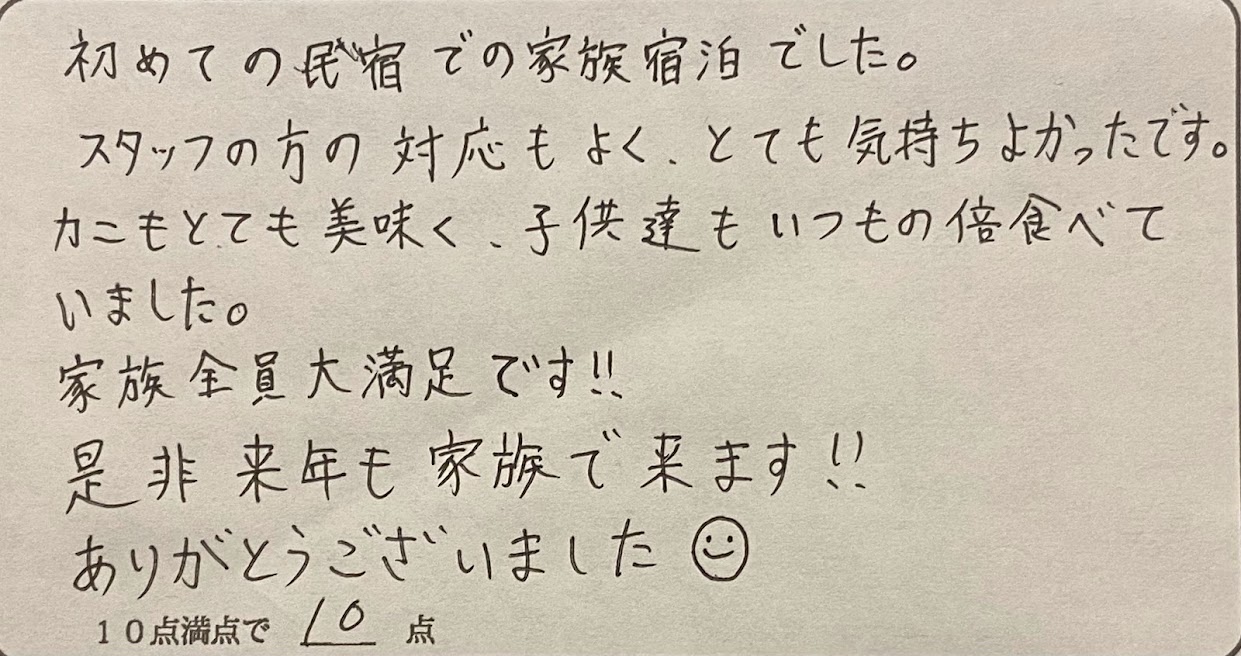 初めての民宿での家族宿泊でした。
スタッフの方の対応もよく、とても気持ちよかったです。
カニもとても美味く、子供達もいつもの倍食べて
いました。
家族全員大満足です!!
是非来年も家族で来ます!!
ありがとうございました☺
10点満点で 10 点